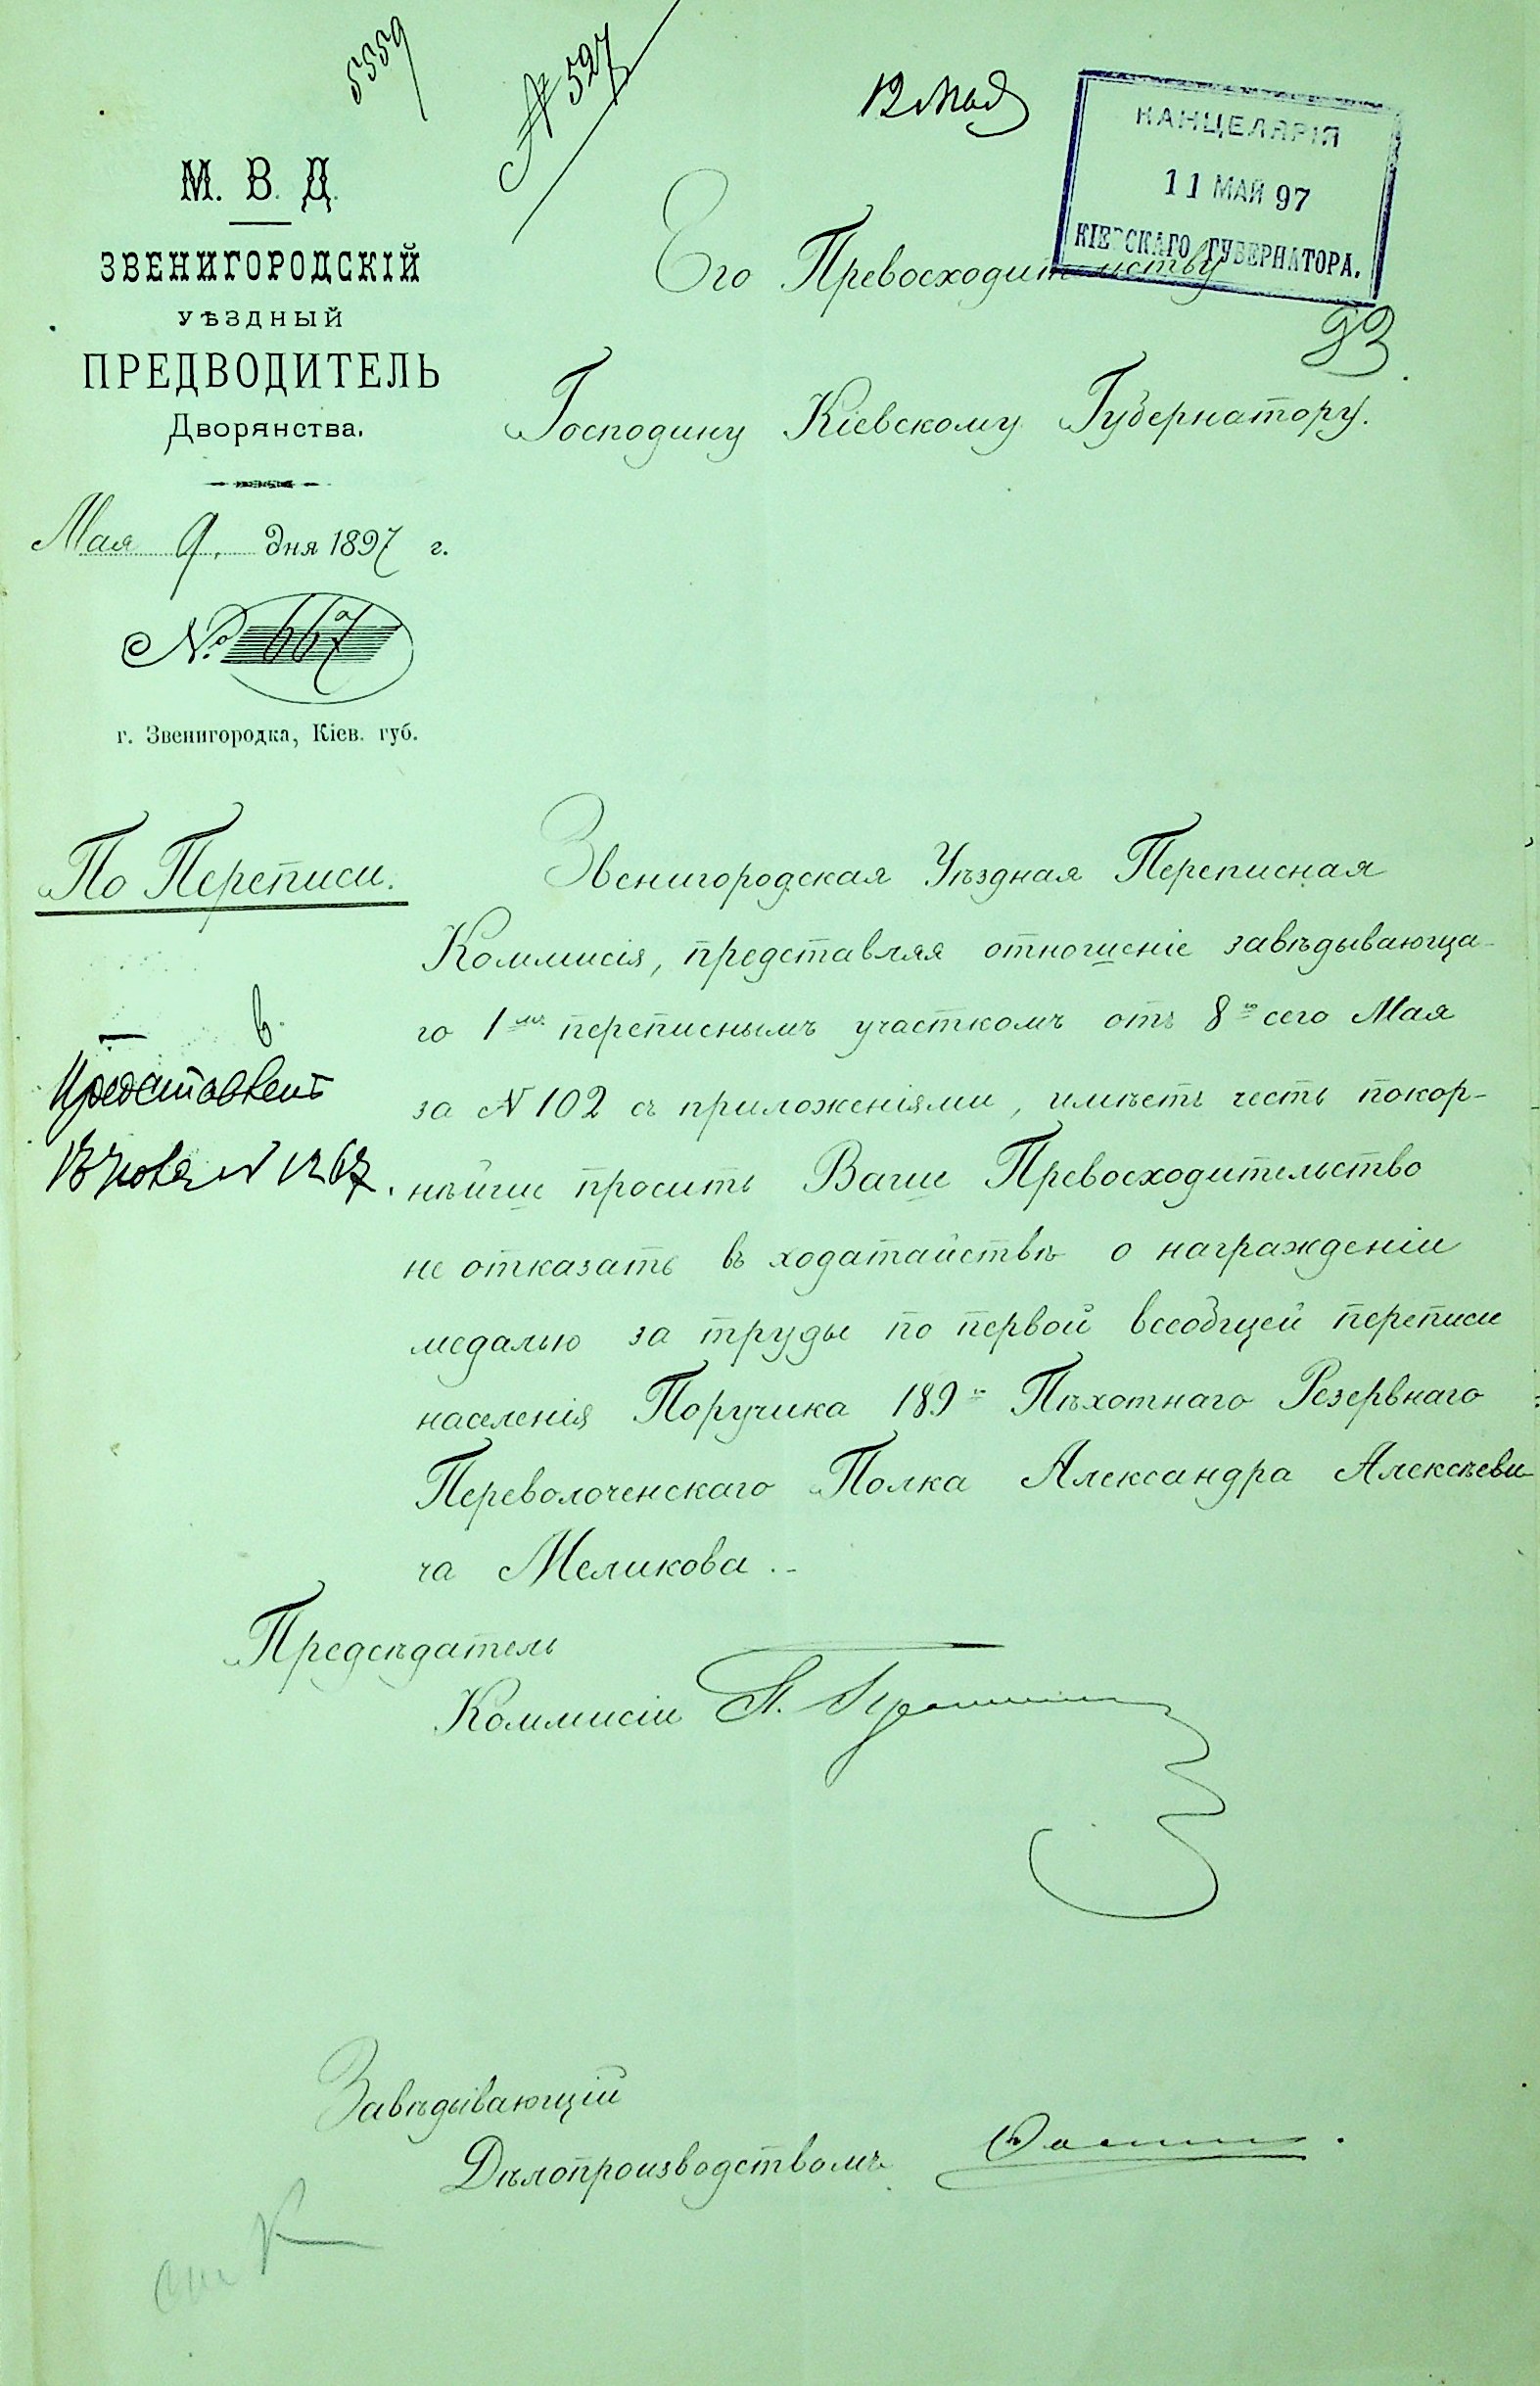 5559
№ 527
12 Мая
КАНЦЕЛЯРІЯ
11 МАЙ 97
КІЕВСКАГО ГУБЕРНАТОРА.
М. В. Д.
ЗВЕНИГОРОДСКІЙ
УѢЗДНЫЙ
ПРЕДВОДИТЕЛЬ
Дворянства.
Мая 9. дня 1897 г.
№ 667
г. Звенигородка, Кіев. губ.
Его Превосходительству
83
Господину Кіевскому Губернатору.
По Переписи.
Звенигородская Уѣздная Переписная
Коммисія, представляя отношеніе завѣдывающа-
го 1мъ переписнымъ участкомъ отъ 8го сего Мая
за N 102 съ приложеніями, имѣетъ честь покор-
нѣйше просить Ваше Превосходительство
не отказать въ ходатайствѣ о награжденіи
медалью за труды по первой всеобщей переписи
населенія Поручика 189го Пѣхотнаго Резервнаго
Переволоченскаго Полка Александра Алексѣеви-
ча Меликова.
в.
Представлен
N 1267.
Предсѣдатель
Коммисіи П.
Завѣдывающій
Дѣлопроизводствомъ